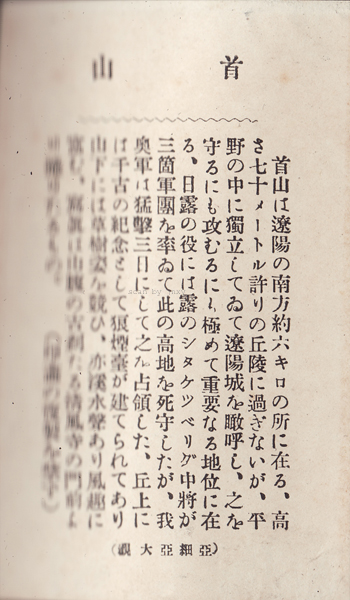 首山
首山は遼陽の南方約六キロの所に在る、高
さ七十メートル許りの丘陵に過ぎないが、平
野の中に獨立してゐて遼陽城を瞰呼し、之を
守るにも攻むるにも極めて重要なる地位に在
る、日露の役には露のシタケツベリグ中將が
三箇軍團を率ゐて此の高地を死守したが、我
奥軍は猛擊三日にして之を占領した、丘上に
は千古の紀念として狼煙臺が建てられてあり
山下には草樹姿を競ひ、亦溪水聲あり風趣に
富む、寫眞は山腹の古刹たる清風寺の門前よ
り
(亞細亞大觀)